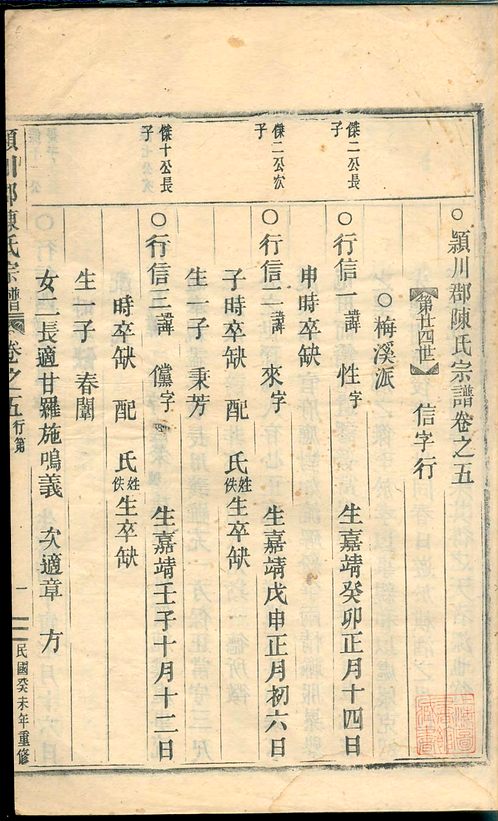 ○潁川郡陳氏宗譜卷之五
【第廿四世】 信字行
○梅溪派
傑二公長子
○行信一 諱 性字 生嘉靖癸卯正月十四日
申時卒缺
傑二公次子
○行信二 諱 來字 生嘉靖戊申正月初六日
子時卒缺 配 氏姓佚生卒缺
生一子 秉芳
傑十公長子
○行信三 諱 儻字 生嘉靖壬子十月十二日
時卒缺 配 氏姓佚生卒缺
生一子 春闈
女二長適甘羅施鳴義 次適章 方
潁川郡陳氏宗譜 卷之五 行第 一 民國癸未年重修